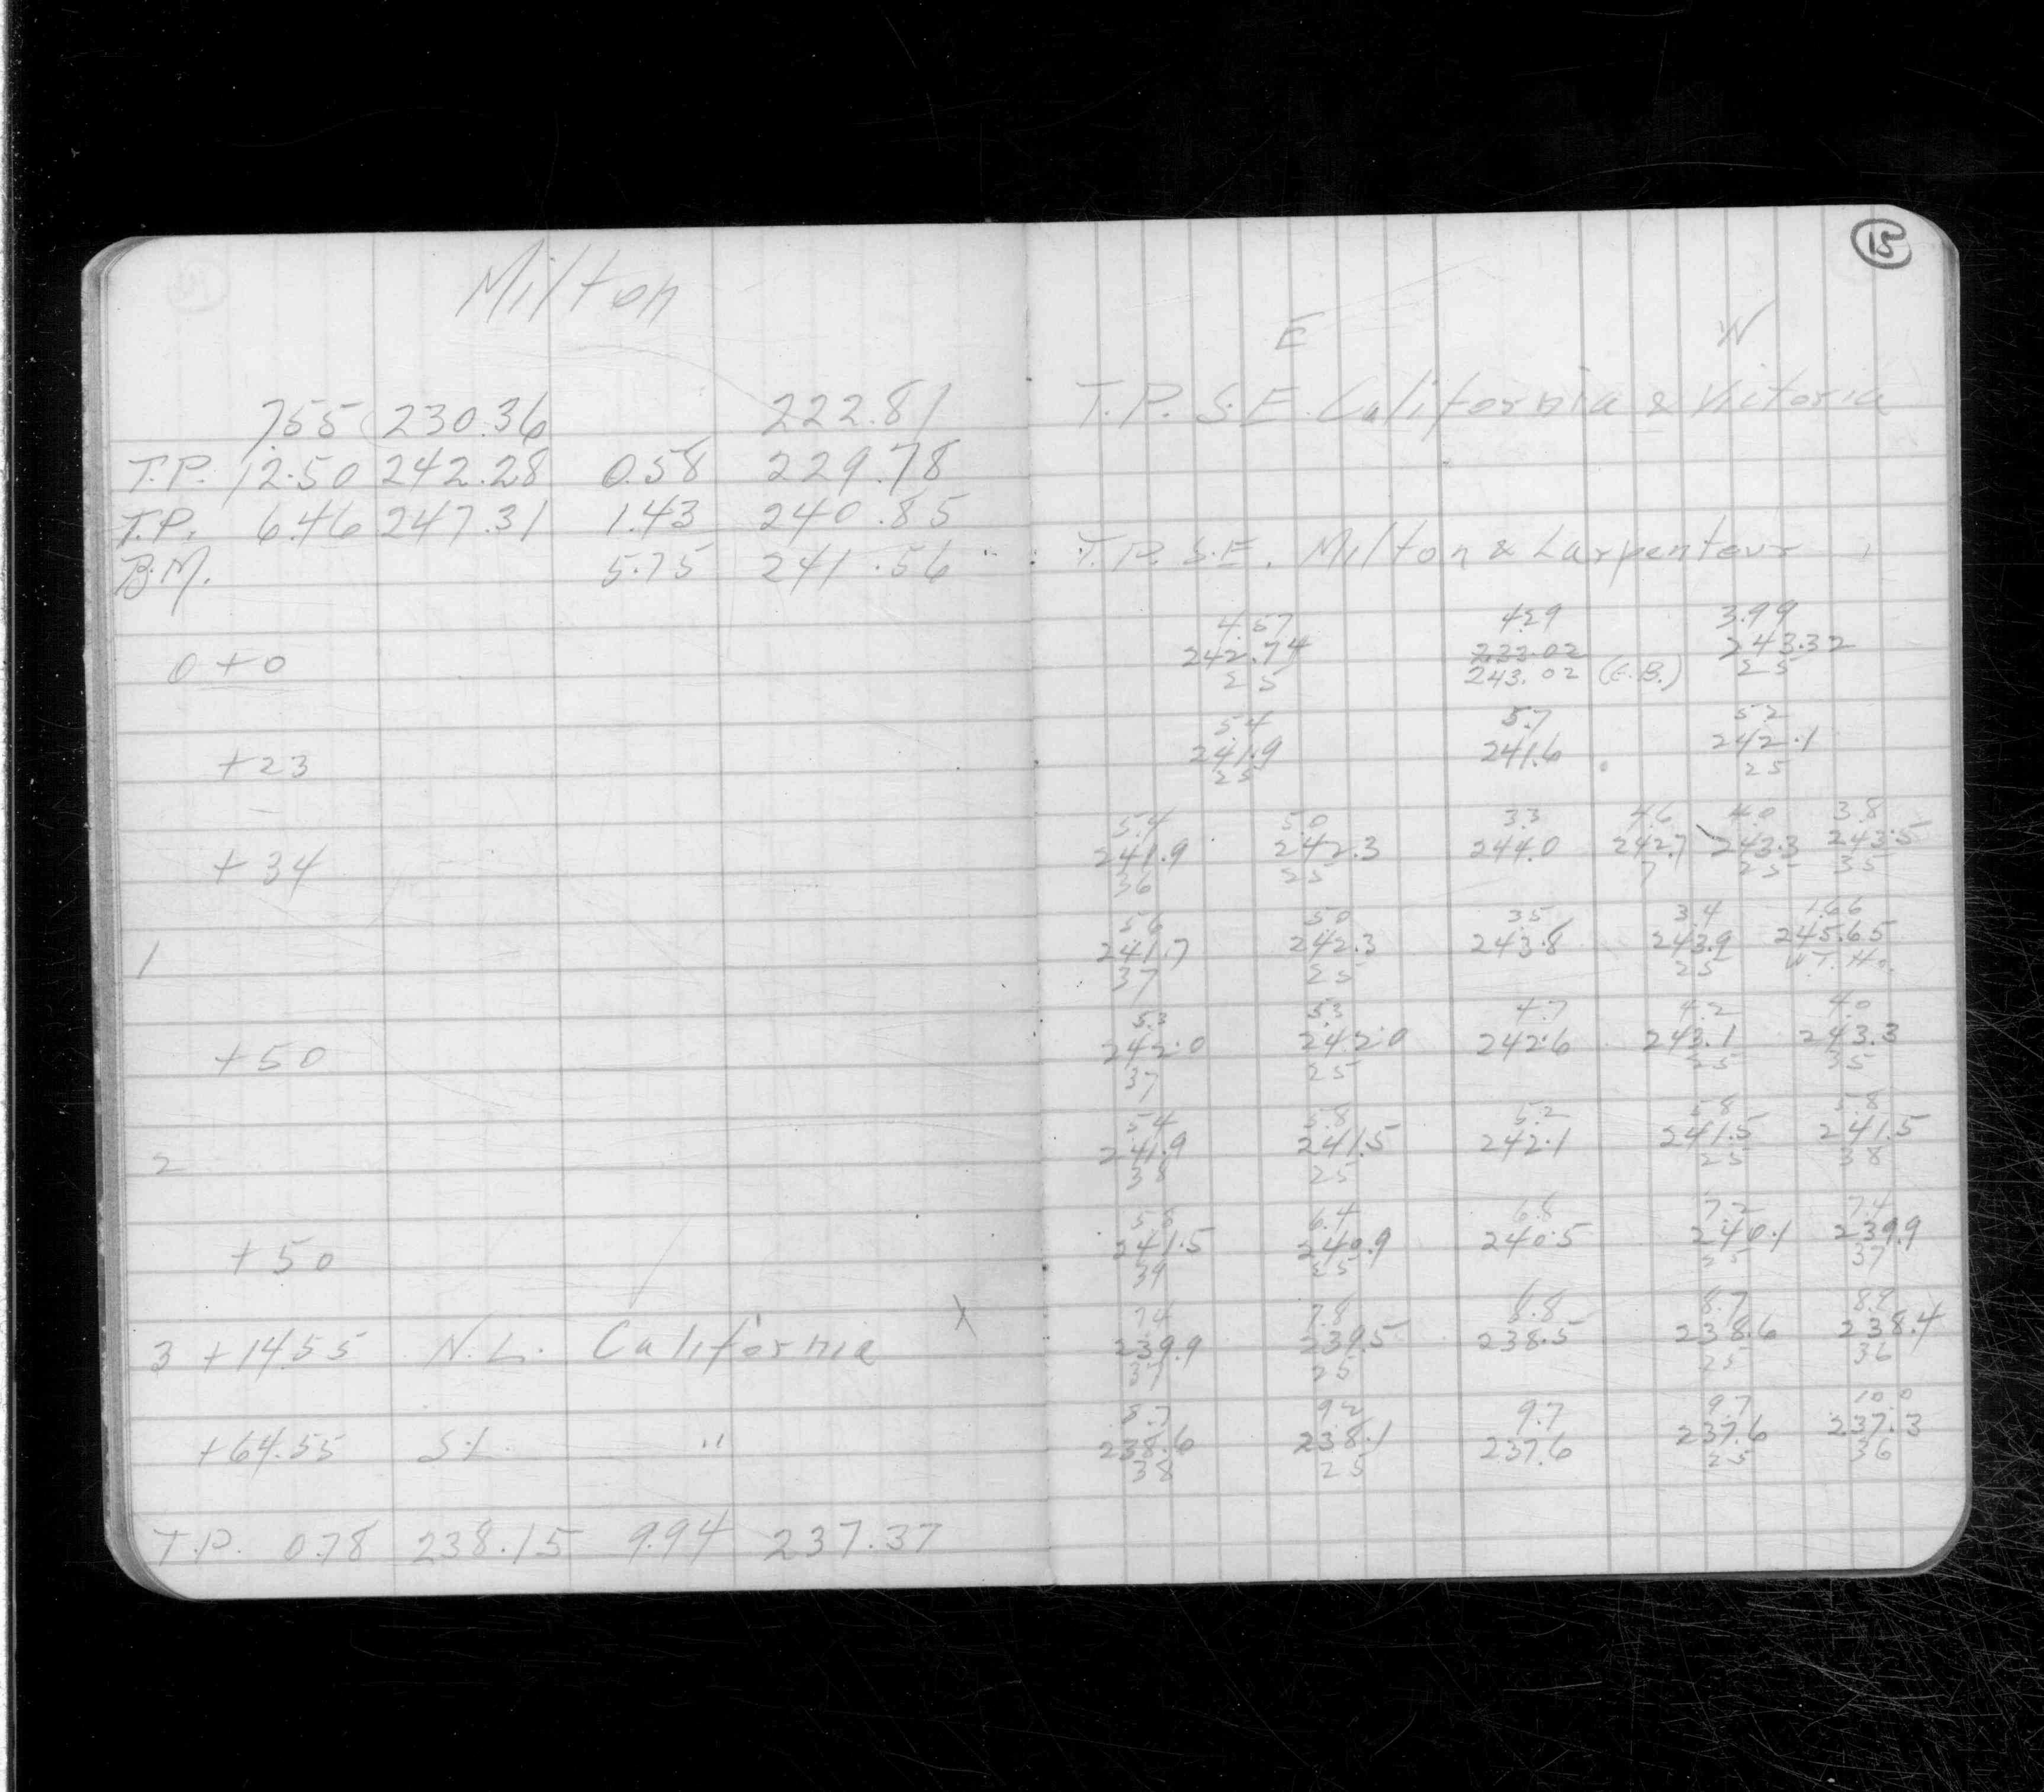 15
Milton
E W
7.55 230.36 222.81 T.P. S.E. California & Victoria
T.P. 12.50 242.28 0.58 229.78
T.P. 6.46 247.31 1.43 240.85
B.M. 5.75 241.56 T.P. S.E. Milton & Larpenteur
4.57 4.29 3.99
0+0 242.74 233.02 243.32
25 243.02 (C.B.) 25
5.4 5.7 5.2
+23 241.9 241.6 242.1
25 25
5.4 5.0 3.3 4.6 4.0 3.8
+34 241.9 242.3 244.0 242.7 243.3 243.5
36 25 7 25 35
5.6 5.0 3.5 3.4 1.66
1 241.7 242.3 243.8 243.9 245.65
37 25 25 WT. Ho.
5.3 5.3 4.7 4.2 4.0
+50 242.0 242.0 242.6 243.1 243.3
37 25 25 35
5.4 5.8 5.2 5.8 5.8
2 241.9 241.5 242.1 241.5 241.5
38 25 25 38
5.8 6.4 6.8 7.2 7.4
+50 241.5 240.9 240.5 240.1 239.9
39 25 25 37
7.4 7.8 8.8 8.7 8.9
3+14.55 N.L. California X 239.9 239.5 238.5 238.6 238.4
37 25 25 36
8.7 9.2 9.7 9.7 10.0
+64.55 S.L. " 238.6 238.1 237.6 237.6 237.3
38 25 25 36
T.P. 0.78 238.15 9.94 237.37